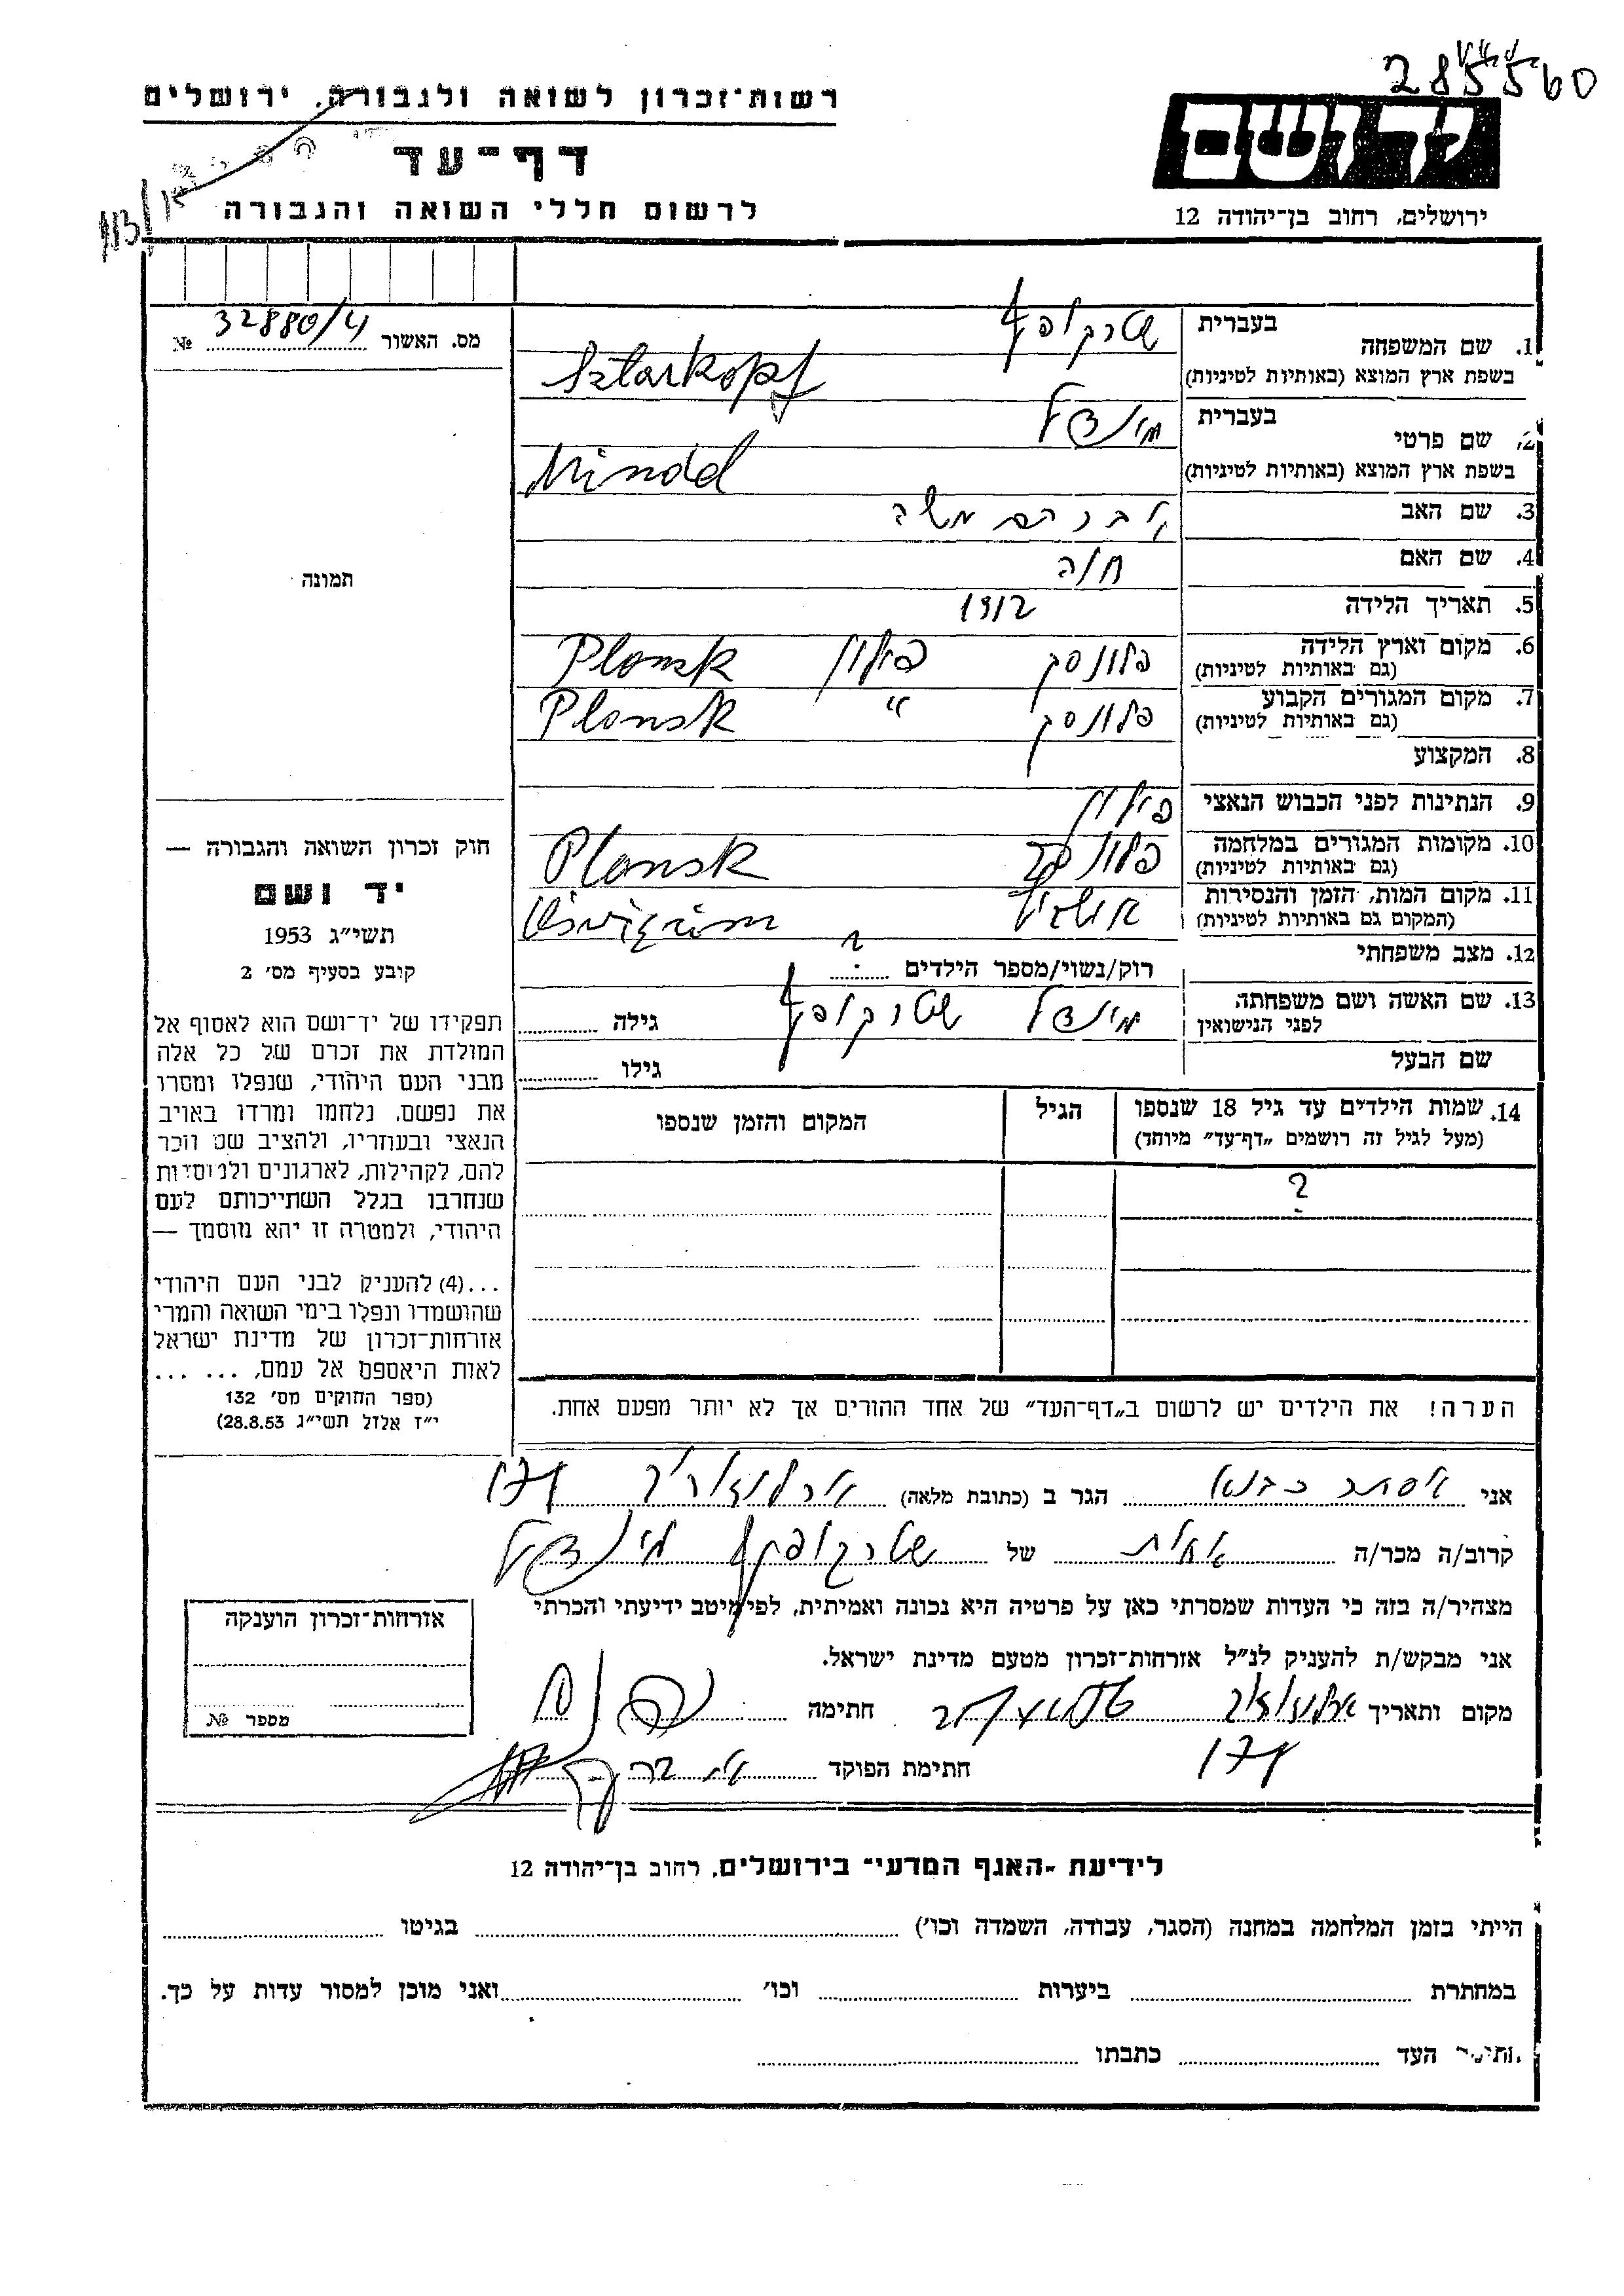 285560
רשות־זכרון לשואה ולגבורה, ירושלים
דף־עד
לרשום חללי השואה והגבורה
יד ושם
ירושלים, רחוב בן־יהודה 12
מס. האשור 32880/4 №
תמונה
1. שם המשפחה בעברית שטרקופף
בשפת ארץ המוצא (באותיות לטיניות) Sztarkopf
2. שם פרטי בעברית מינדל
בשפת ארץ המוצא (באותיות לטיניות) Mindel
3. שם האב אברהם משה
4. שם האם חוה
5. תאריך הלידה 1912
6. מקום וארץ הלידה (גם באותיות לטיניות) פלונסק פולין Plonsk
7. מקום המגורים הקבוע (גם באותיות לטיניות) פלונסק " Plonsk
8. המקצוע
9. הנתינות לפני הכבוש הנאצי פולין
10. מקומות המגורים במלחמה (גם באותיות לטיניות) פלונסק Plonsk
11. מקום המות, הזמן והנסירות (המקום גם באותיות לטיניות)
12. מצב משפחתי רוק/נשוי/מספר הילדים ?
13. שם האשה ושם משפחתה לפני הנישואין מינדל שטרקופף גילה
שם הבעל גילו
14. שמות הילדים עד גיל 18 שנספו (מעל לגיל זה רושמים „דף־עד" מיוחד) הגיל המקום והזמן שנספו
?
הערה! את הילדים יש לרשום ב„דף־העד" של אחד ההורים אך לא יותר מפעם אחת.
חוק זכרון השואה והגבורה —
יד ושם
תשי"ג 1953
קובע בסעיף מס׳ 2
תפקידו של יד־ושם הוא לאסוף אל
המולדת את זכרם של כל אלה
מבני העם היהודי, שנפלו ומסרו
את נפשם, נלחמו ומרדו באויב
הנאצי ובעוזריו, ולהציב שם וזכר
להם, לקהילות, לארגונים ולמוסדות
שנחרבו בגלל השתייכותם לעם
היהודי, ולמטרה זו יהא מוסמך —
...(4) להעניק לבני העם היהודי
שהושמדו ונפלו בימי השואה והמרי
אזרחות־זכרון של מדינת ישראל
לאות היאספם אל עמם, ... ...
(ספר החוקים מס׳ 132
י"ז אלול תשי"ג 28.8.53)
אני אסתר הגר ב (כתובת מלאה) ארלוזורוב 174
קרוב/ה מכר/ה אחות של שטרקופף מינדל
מצהיר/ה בזה כי העדות שמסרתי כאן על פרטיה היא נכונה ואמיתית, לפי מיטב ידיעתי והכרתי
אני מבקש/ת להעניק לנ"ל אזרחות־זכרון מטעם מדינת ישראל.
מקום ותאריך חתימה
174
חתימת הפוקד
אזרחות־זכרון הוענקה
מספר №
לידיעת ״האגף המדעי״ בירושלים, רחוב בן־יהודה 12
הייתי בזמן המלחמה במחנה (הסגר, עבודה, השמדה וכו׳) בגיטו
במחתרת ביערות וכו׳ ואני מוכן למסור עדות על כך.
העד כתבתו